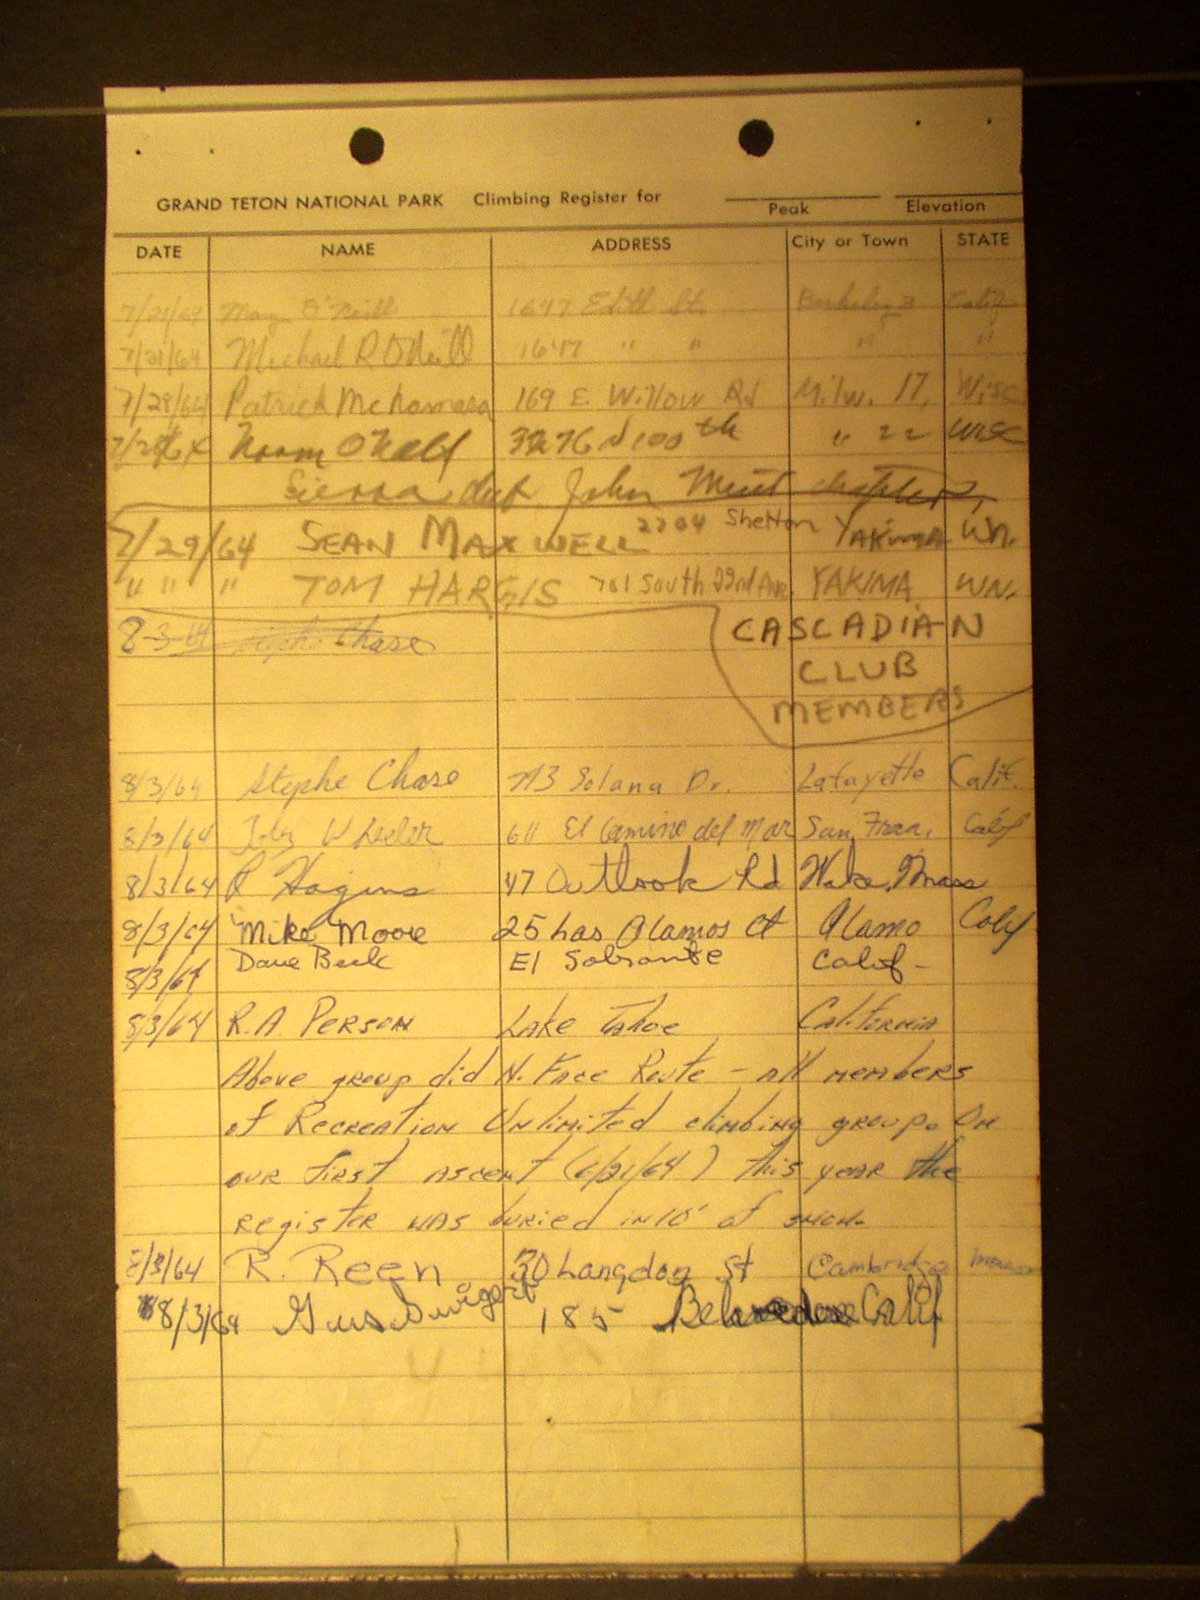 GRAND TETON NATIONAL PARK Climbing Register for
Peak Elevation
DATE NAME ADDRESS City or Town STATE
7/21/64 Mary O'Neill 1647 Edith St. Berkeley 3 Calif
7/21/64 Michael R O'Neill 1647 " " " "
7/28/64 Patrick McNamara 169 E. Willow Rd Milw. 17, Wisc
7/28/64 Norm O'Neill 3276 N 100th " 22 Wisc
Sierra club, John Muir chapter,
7/29/64 SEAN MAXWELL 2204 Shelton YAKIMA WN.
" " " TOM HARGIS 701 South 22nd Ave YAKIMA WN.
8-3-64 Stephe Chase CASCADIAN
CLUB
MEMBERS
8/3/64 Stephe Chase 713 Solana Dr. Lafayette Calif.
8/3/64 Wheeler 611 El Camino del Mar San Fran. Calif
8/3/64 R Hagins 47 Outlook Rd Wake. Mass
8/3/64 Mike Moore 25 Las Alamos Ct Alamo Calif
8/3/64 Dave Beck El Sobrante Calif-
8/3/64 R.A. PERSON LAKE TAHOE CALIFORNIA
Above group did N. Face Route - all members
of Recreation Unlimited climbing group. On
our first ascent (6/21/64) this year the
register was buried in 10' of snow.
8/3/64 R. Reen 30 Langdon St Cambridge mass
8/3/64 Gus Swigert 185 Belvedere Calif